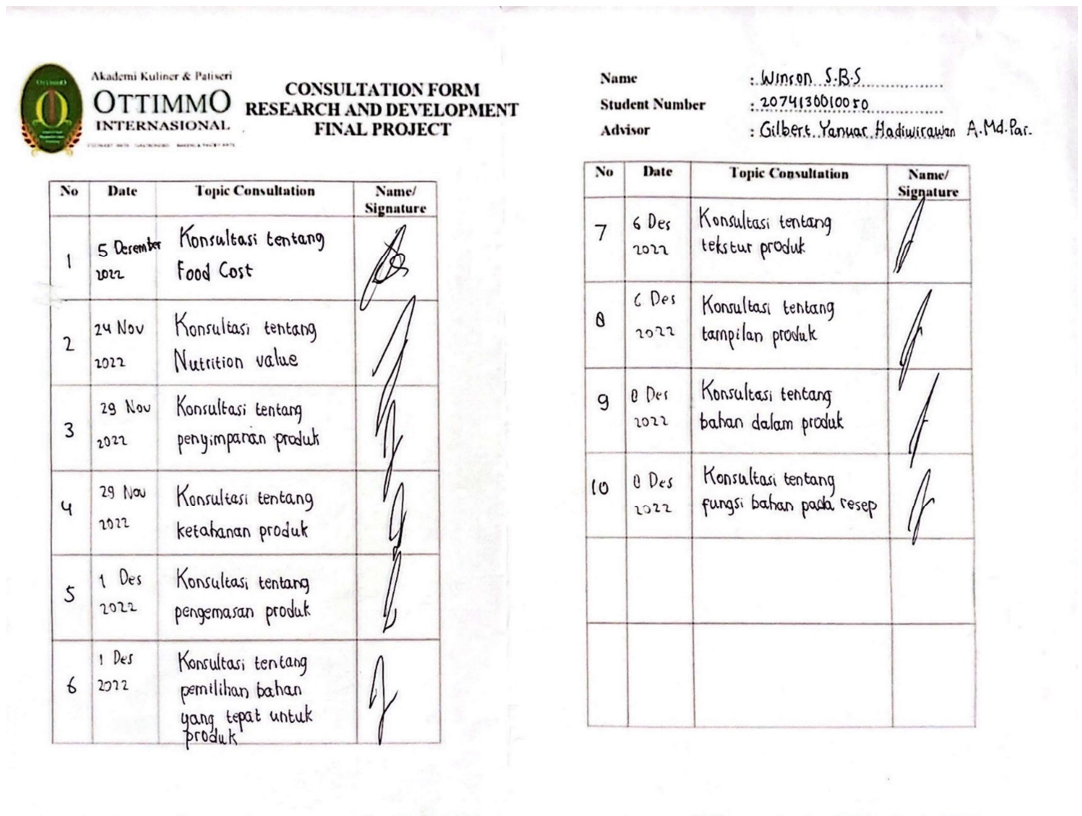 Akademi Kuliner & Patiseri
OTTIMMO
INTERNASIONAL
CONSULTATION FORM
RESEARCH AND DEVELOPMENT
FINAL PROJECT
No Date Topic Consultation Name/
Signature
1 5 Desember Konsultasi tentang
2022 Food Cost
2 24 Nov Konsultasi tentang
2022 Nutrition value
3 29 Nov Konsultasi tentang
2022 penyimpanan produk
4 29 Nov Konsultasi tentang
2022 ketahanan produk
5 1 Des Konsultasi tentang
2022 pengemasan produk
6 1 Des Konsultasi tentang
2022 pemilihan bahan
yang tepat untuk
produk
Name : Winson S.B.S
Student Number : 2074130010050
Advisor : Gilbert Yanuar Hadiwirawan A.Md.Par.
No Date Topic Consultation Name/
Signature
7 6 Des Konsultasi tentang
2022 tekstur produk
8 6 Des Konsultasi tentang
2022 tampilan produk
9 8 Des Konsultasi tentang
2022 bahan dalam produk
10 8 Des Konsultasi tentang
2022 fungsi bahan pada resep